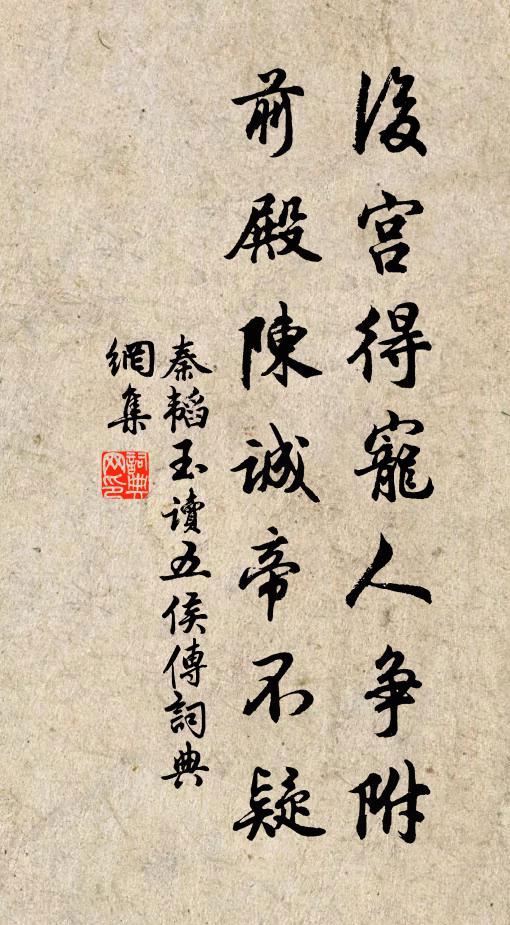 後宮得寵人争附
前殿陳誠帝不疑
秦韜玉讀五侯傳詞典
網集
詞典網印